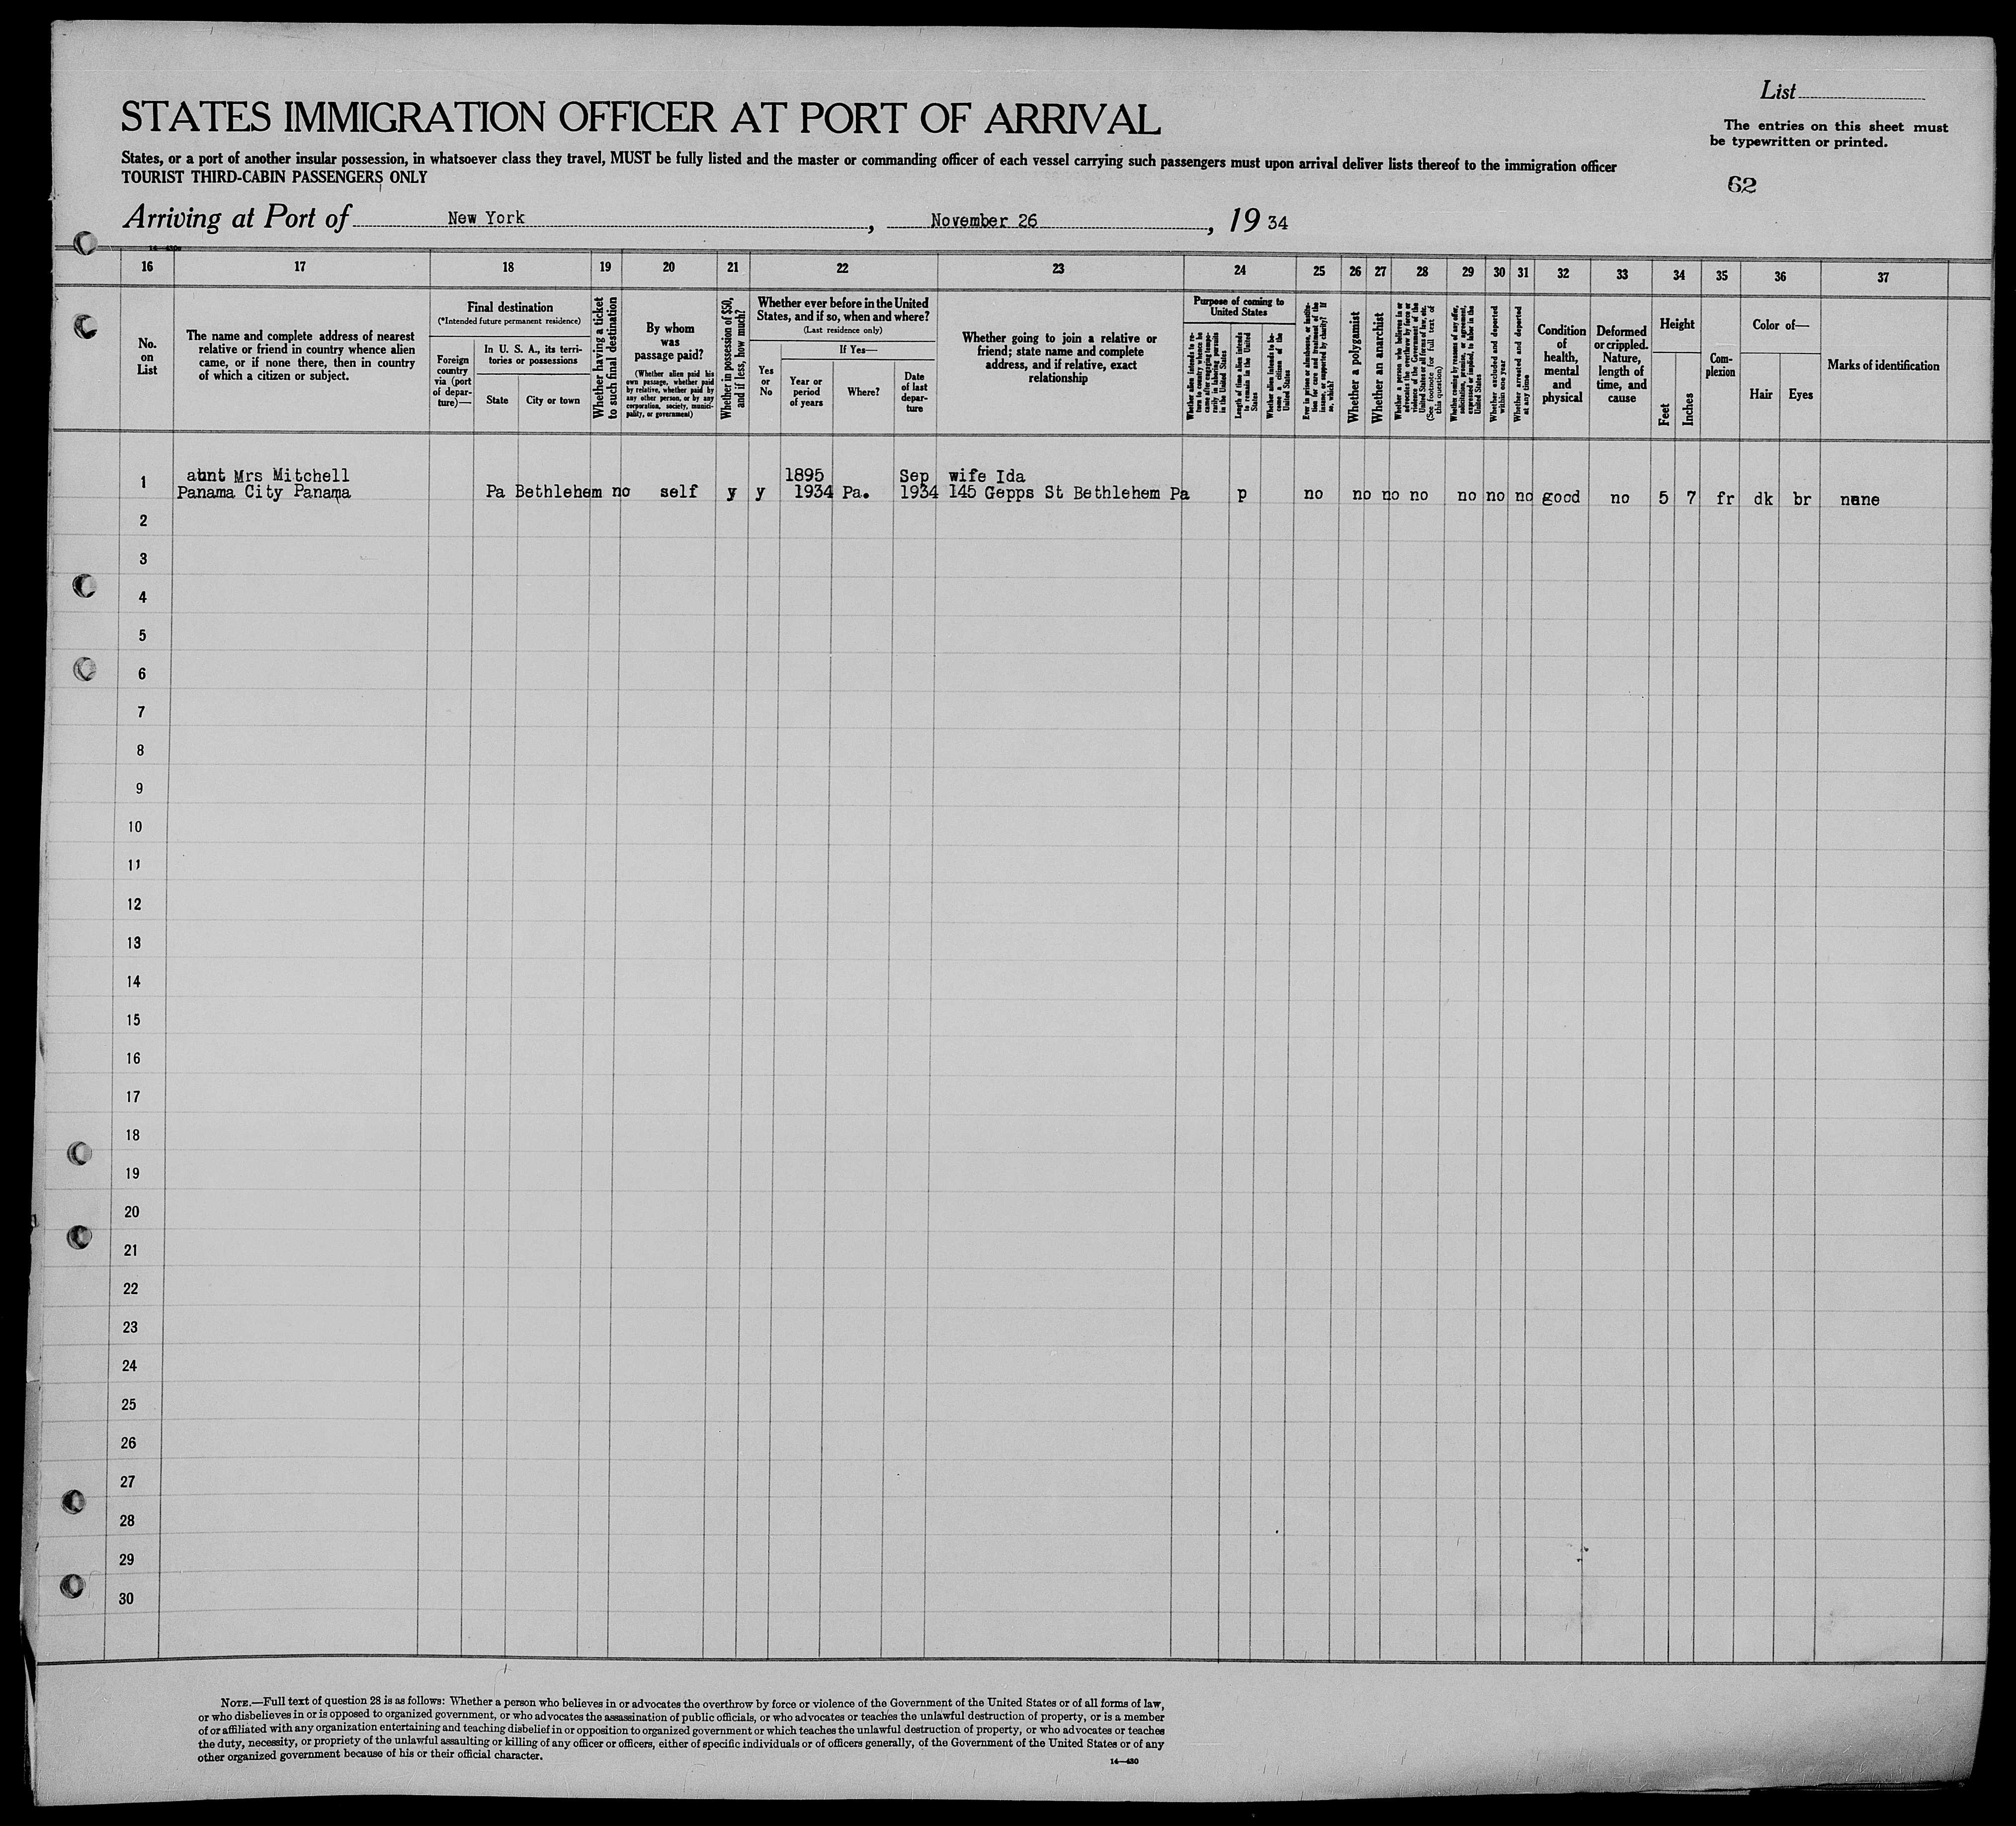 List
STATES IMMIGRATION OFFICER AT PORT OF ARRIVAL
The entries on this sheet must
be typewritten or printed.
States, or a port of another insular possession, in whatsoever class they travel, MUST be fully listed and the master or commanding officer of each vessel carrying such passengers must upon arrival deliver lists thereof to the immigration officer
TOURIST THIRD-CABIN PASSENGERS ONLY
62
Arriving at Port of New York, November 26, 19 34
16 17 18 19 20 21 22 23 24 25 26 27 28 29 30 31 32 33 34 35 36 37
No.
on
List
The name and complete address of nearest
relative or friend in country whence alien
came, or if none there, then in country
of which a citizen or subject.
Final destination
(*Intended future permanent residence)
Foreign
country
via (port
of depar-
ture)—
In U. S. A., its terri-
tories or possessions
State
City or town
Whether having a ticket
to such final destination
By whom
was
passage paid?
(Whether alien paid his
own passage, whether paid
by relative, whether paid by
any other person, or by any
corporation, society, munici-
pality, or government)
Whether in possession of $50,
and if less, how much?
Whether ever before in the United
States, and if so, when and where?
(Last residence only)
Yes
or
No
If Yes—
Year or
period
of years
Where?
Date
of last
depar-
ture
Whether going to join a relative or
friend; state name and complete
address, and if relative, exact
relationship
Purpose of coming to
United States
Whether alien intends to re-
turn to country whence he
came after engaging tempo-
rarily in laboring pursuits
in the United States
Length of time alien intends
to remain in the United
States
Whether alien intends to be-
come a citizen of the
United States
Ever in prison or almshouse, or institu-
tion for care and treatment of the
insane, or supported by charity? If
so, which?
Whether a polygamist
Whether an anarchist
Whether a person who believes in or
advocates the overthrow by force or
violence of the Government of the
United States or all forms of law, etc.
(See footnote for full text of
this question)
Whether coming by reason of any offer,
solicitation, promise, or agreement,
expressed or implied, to labor in the
United States
Whether excluded and deported
within one year
Whether arrested and deported
at any time
Condition
of
health,
mental
and
physical
Deformed
or crippled.
Nature,
length of
time, and
cause
Height
Feet
Inches
Com-
plexion
Color of—
Hair
Eyes
Marks of identification
aunt Mrs Mitchell 1895 Sep wife Ida
1 Panama City Panama Pa Bethlehem no self y y 1934 Pa. 1934 145 Gepps St Bethlehem Pa p no no no no no no no good no 5 7 fr dk br none
2
3
4
5
6
7
8
9
10
11
12
13
14
15
16
17
18
19
20
21
22
23
24
25
26
27
28
29
30
NOTE.—Full text of question 28 is as follows: Whether a person who believes in or advocates the overthrow by force or violence of the Government of the United States or of all forms of law,
or who disbelieves in or is opposed to organized government, or who advocates the assassination of public officials, or who advocates or teaches the unlawful destruction of property, or is a member
of or affiliated with any organization entertaining and teaching disbelief in or opposition to organized government or which teaches the unlawful destruction of property, or who advocates or teaches
the duty, necessity, or propriety of the unlawful assaulting or killing of any officer or officers, either of specific individuals or of officers generally, of the Government of the United States or of any
other organized government because of his or their official character.
14—430